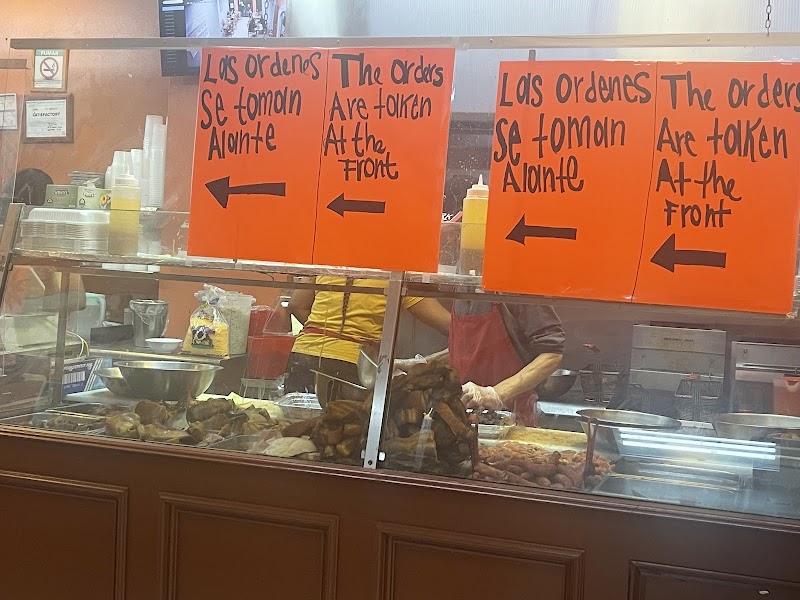 FUMAR
SATISFACTORY
Las ordenes
Se toman
Alante
The orders
Are taken
At the
Front
Las ordenes
se toman
Alante
The orders
Are taken
At the
Front